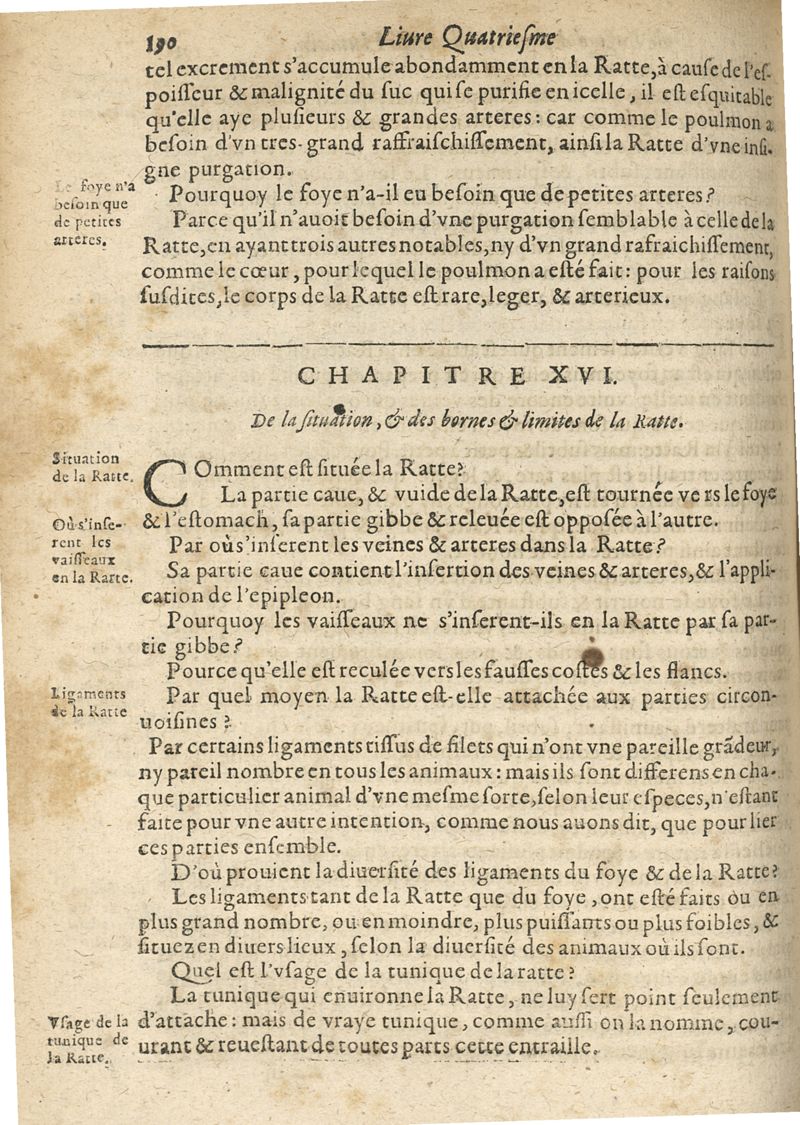 190
Liure Quatriesme
tel excrement s'accumule abondamment en la Ratte, à cause de l'es-
poisseur & malignité du suc qui se purifie en icelle, il est esquitable
qu'elle aye plusieurs & grandes arteres: car comme le poulmon a
besoin d'vn tres-grand raffraischissement, ainsi la Ratte d'vne insi-
gne purgation.
Le foye n'a
besoin que
de petites
arteres.
Pourquoy le foye n'a-il eu besoin que de petites arteres?
Parce qu'il n'auoit besoin d'vne purgation semblable à celle de la
Ratte, en ayant trois autres notables, ny d'vn grand rafraichissement,
comme le cœur, pour lequel le poulmon a esté fait: pour les raisons
susdites, le corps de la Ratte est rare, leger, & arterieux.
CHAPITRE XVI.
De la situation, & des bornes & limites de la Ratte.
Situation
de la Ratte.
COmment est située la Ratte?
La partie caue, & vuide de la Ratte, est tournée vers le foye
& l'estomach, sa partie gibbe & releuée est opposée à l'autre.
Où s'inse-
rent les
vaisseaux
en la Ratte.
Par où s'inserent les veines & arteres dans la Ratte?
Sa partie caue contient l'insertion des veines & arteres, & l'appli-
cation de l'epipleon.
Pourquoy les vaisseaux ne s'inserent-ils en la Ratte par sa par-
tie gibbe?
Pource qu'elle est reculée vers les fausses costes & les flancs.
Ligaments
de la Ratte
Par quel moyen la Ratte est-elle attachée aux parties circon-
uoisines?
Par certains ligaments tissus de filets qui n'ont vne pareille grãdeur,
ny pareil nombre en tous les animaux: mais ils sont differens en cha-
que particulier animal d'vne mesme sorte, selon leur especes, n'estant
faite pour vne autre intention, comme nous auons dit, que pour lier
ces parties ensemble.
D'où prouient la diuersité des ligaments du foye & de la Ratte?
Les ligaments tant de la Ratte que du foye, ont esté faits ou en
plus grand nombre, ou en moindre, plus puissants ou plus foibles, &
situez en diuers lieux, selon la diuersité des animaux où ils sont.
Quel est l'vsage de la tunique de la ratte?
La tunique qui enuironne la Ratte, ne luy sert point seulement
Vsage de la
tunique de
la Ratte.
d'attache: mais de vraye tunique, comme aussi on la nomme, cou-
urant & reuestant de toutes parts cette entraille.